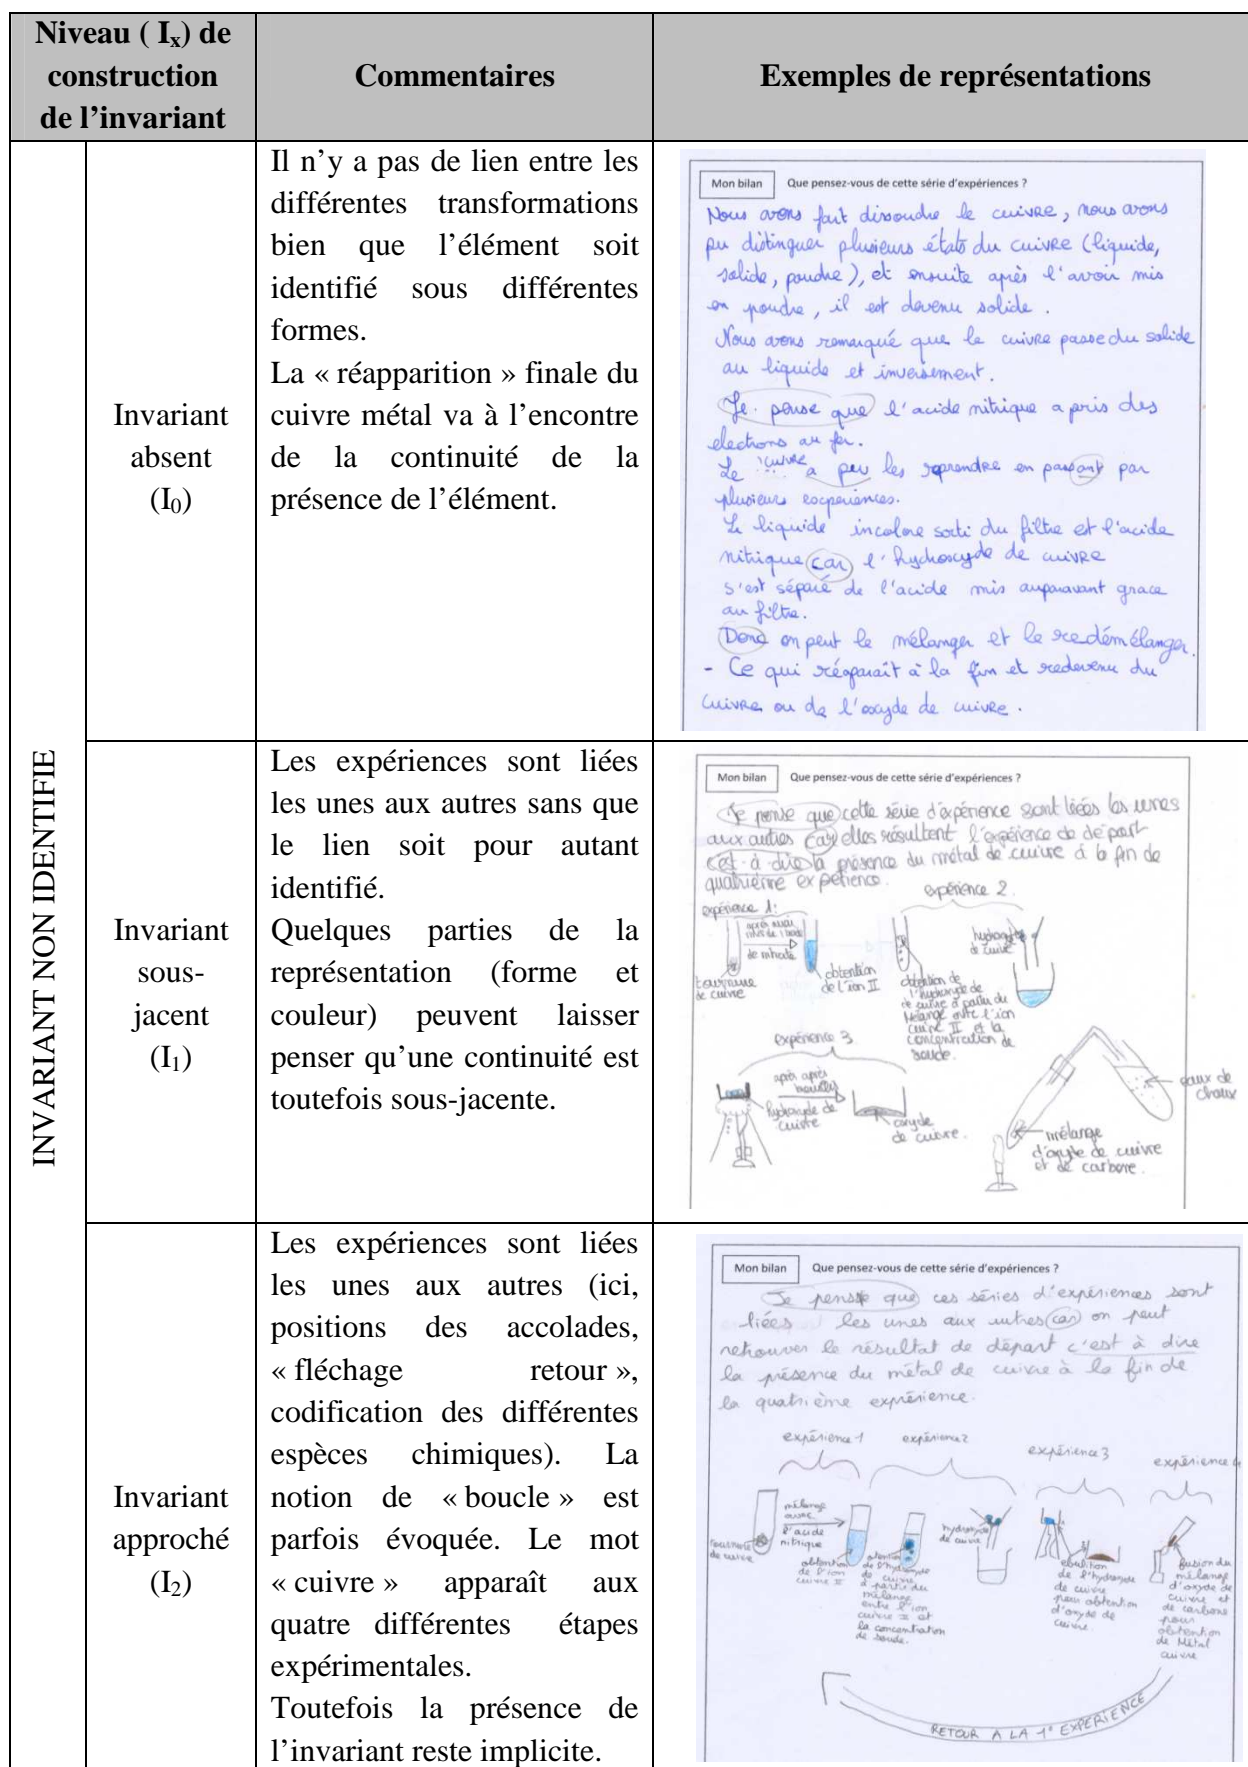 Niveau ( Ix) de
construction
de l'invariant
Commentaires
Exemples de représentations
INVARIANT NON IDENTIFIE
Invariant
absent
(I0)
Il n'y a pas de lien entre les
différentes transformations
bien que l'élément soit
identifié sous différentes
formes.
La « réapparition » finale du
cuivre métal va à l'encontre
de la continuité de la
présence de l'élément.
Mon bilan Que pensez-vous de cette série d'expériences ?
Nous avons fait dissoudre le cuivre, nous avons
pu distinguer plusieurs états du cuivre (liquide,
solide, poudre), et ensuite après l'avoir mis
en poudre, il est devenu solide.
Nous avons remarqué que le cuivre passe du solide
au liquide et inversement.
Je pense que l'acide nitrique a pris des
electrons au fer.
Le cuivre a peu les reprendre en passant par
plusieurs expériences.
Le liquide incolore sorti du filtre et l'acide
nitrique car l'hydroxyde de cuivre
s'est séparé de l'acide mis auparavant grace
au filtre.
Donc on peut le mélanger et le redémélanger.
- Ce qui réaparaît à la fin et redevenu du
cuivre ou de l'oxyde de cuivre.
Invariant
sous-
jacent
(I1)
Les expériences sont liées
les unes aux autres sans que
le lien soit pour autant
identifié.
Quelques parties de la
représentation (forme et
couleur) peuvent laisser
penser qu'une continuité est
toutefois sous-jacente.
Mon bilan Que pensez-vous de cette série d'expériences ?
Je pense que cette série d'expérience sont liées les unes
aux autres car elles résultent l'expérience de départ
c'est-à-dire la présence du métal de cuivre à la fin de
quatrième expérience.
expérience 1:
expérience 2
tournure
de cuivre
de nitrate
obtention
de l'ion II
obtention de
l'hydroxyde de
de cuivre à partir du
mélange entre l'ion
cuivre II et la
concentration de
soude.
hydroxyde
de cuivre
expérience 3
hydroxyde de
cuivre
oxyde
de cuivre.
mélange
d'oxyde de cuivre
et de carbone.
eaux de
chaux
Invariant
approché
(I2)
Les expériences sont liées
les unes aux autres (ici,
positions des accolades,
« fléchage retour »,
codification des différentes
espèces chimiques). La
notion de « boucle » est
parfois évoquée. Le mot
« cuivre » apparaît aux
quatre différentes étapes
expérimentales.
Toutefois la présence de
l'invariant reste implicite.
Mon bilan Que pensez-vous de cette série d'expériences ?
Je pense que ces séries d'expériences sont
liées les unes aux autres car on peut
retrouver le résultat de départ c'est à dire
la présence du métal de cuivre à la fin de
la quatrième expérience.
expérience 1
expérience 2
expérience 3
expérience 4
tournure
de cuivre
mélange
avec
l'acide
nitrique
obtention
de l'ion
cuivre II
de l'hydroxyde
de cuivre
à partir du
mélange
entre l'ion
cuivre II et
la concentration
de soude.
hydroxyde
de cuivre
ebulition
de l'hydroxyde
de cuivre
pour obtention
d'oxyde de
cuivre.
fusion du
mélange
d'oxyde de
cuivre et
de carbone
pour
obtention
de Métal
cuivre
RETOUR A LA 1° EXPERIENCE